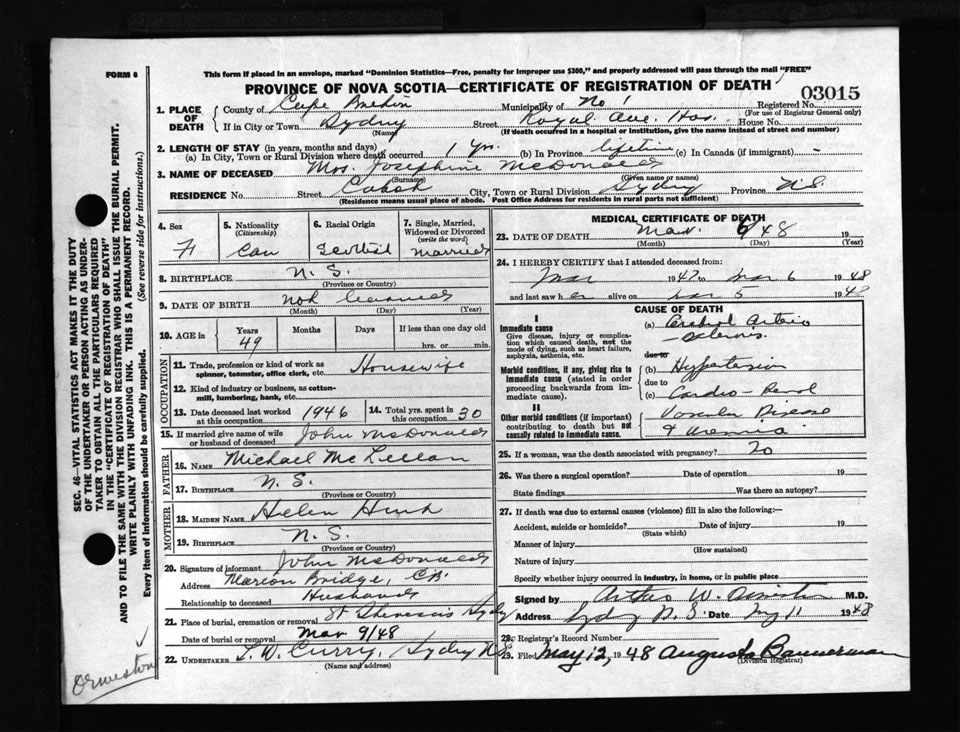 FORM 6
This form if placed in an envelope, marked "Dominion Statistics—Free, penalty for improper use $300," and properly addressed will pass through the mail "FREE"
PROVINCE OF NOVA SCOTIA—CERTIFICATE OF REGISTRATION OF DEATH
03015
1. PLACE OF DEATH
County of Cape Breton Municipality of No 1 Registered No.
(For use of Registrar General only)
If in City or Town Sydney Street Royal Ave. Hos. House No.
(Name) (If death occurred in a hospital or institution, give the name instead of street and number)
2. LENGTH OF STAY (in years, months and days)
(a) In City, Town or Rural Division where death occurred 1 Yr. (b) In Province lifetime (c) In Canada (if immigrant) -
3. NAME OF DECEASED Mrs. Josephine McDonald
(Surname) (Given name or names)
RESIDENCE No Street Cabot City, Town or Rural Division Sydney Province N.S.
(Residence means usual place of abode. Post Office Address for residents in rural parts not sufficient)
4. Sex F
5. Nationality (Citizenship) Can
6. Racial Origin Scottish
7. Single, Married, Widowed or Divorced (write the word) Married
8. BIRTHPLACE N. S.
(Province or Country)
9. DATE OF BIRTH not learned
(Month) (Day) (Year)
10. AGE in Years 49 Months Days If less than one day old
hrs. or min.
OCCUPATION
11. Trade, profession or kind of work as spinner, teamster, office clerk, etc. Housewife
12. Kind of industry or business, as cotton-mill, lumbering, bank, etc.
13. Date deceased last worked at this occupation 1946 14. Total yrs. spent in this occupation 30
15. If married give name of wife or husband of deceased John McDonald
FATHER
16. NAME Michael McLellan
17. BIRTHPLACE N. S.
(Province or Country)
MOTHER
18. MAIDEN NAME Helen
19. BIRTHPLACE N. S.
(Province or Country)
20. Signature of informant John McDonald
Address Marion Bridge, C.B.
Relationship to deceased Husband
21. Place of burial, cremation or removal St Theresa's Sydney
Date of burial or removal Mar 9/48
22. UNDERTAKER T. W. Curry, Sydney N.S.
(Name and address)
MEDICAL CERTIFICATE OF DEATH
23. DATE OF DEATH Mar. 6 48 19
(Month) (Day) (Year)
24. I HEREBY CERTIFY that I attended deceased from:
Mar 1947 to Mar 6 1948
and last saw her alive on Mar 5 1948
CAUSE OF DEATH
I
Immediate cause
Give disease, injury or complication which caused death, not the mode of dying, such as heart failure, asphyxia, asthenia, etc.
(a) Cerebral Arterio-sclerosis.
due to
Morbid conditions, if any, giving rise to immediate cause (stated in order proceeding backwards from immediate).
(b) Hypertension
due to
(c) Cardio-Renal
II
Other morbid conditions (if important) contributing to death but not causally related to immediate cause.
Vascular Disease
& Uremia
25. If a woman, was the death associated with pregnancy? No
26. Was there a surgical operation? Date of operation 19
State findings Was there an autopsy?
27. If death was due to external causes (violence) fill in also the following:—
Accident, suicide or homicide? Date of injury 19
(State which)
Manner of injury
(How sustained)
Nature of injury
Specify whether injury occurred in industry, in home, or in public place
Signed by Arthur W. M.D.
Address Sydney N.S. Date May 11 1948
28. Registrar's Record Number
29. Filed May 12, 1948 Augusta Bannerman
(Division Registrar)
SEC. 46—VITAL STATISTICS ACT MAKES IT THE DUTY
OF THE UNDERTAKER OR PERSON ACTING AS UNDER-
TAKER TO OBTAIN ALL THE PARTICULARS REQUIRED
IN THE "CERTIFICATE OF REGISTRATION OF DEATH"
AND TO FILE THE SAME WITH THE DIVISION REGISTRAR WHO SHALL ISSUE THE BURIAL PERMIT.
WRITE PLAINLY WITH UNFADING INK. THIS IS A PERMANENT RECORD.
Every item of information should be carefully supplied. (See reverse side for instructions.)
Ormiston